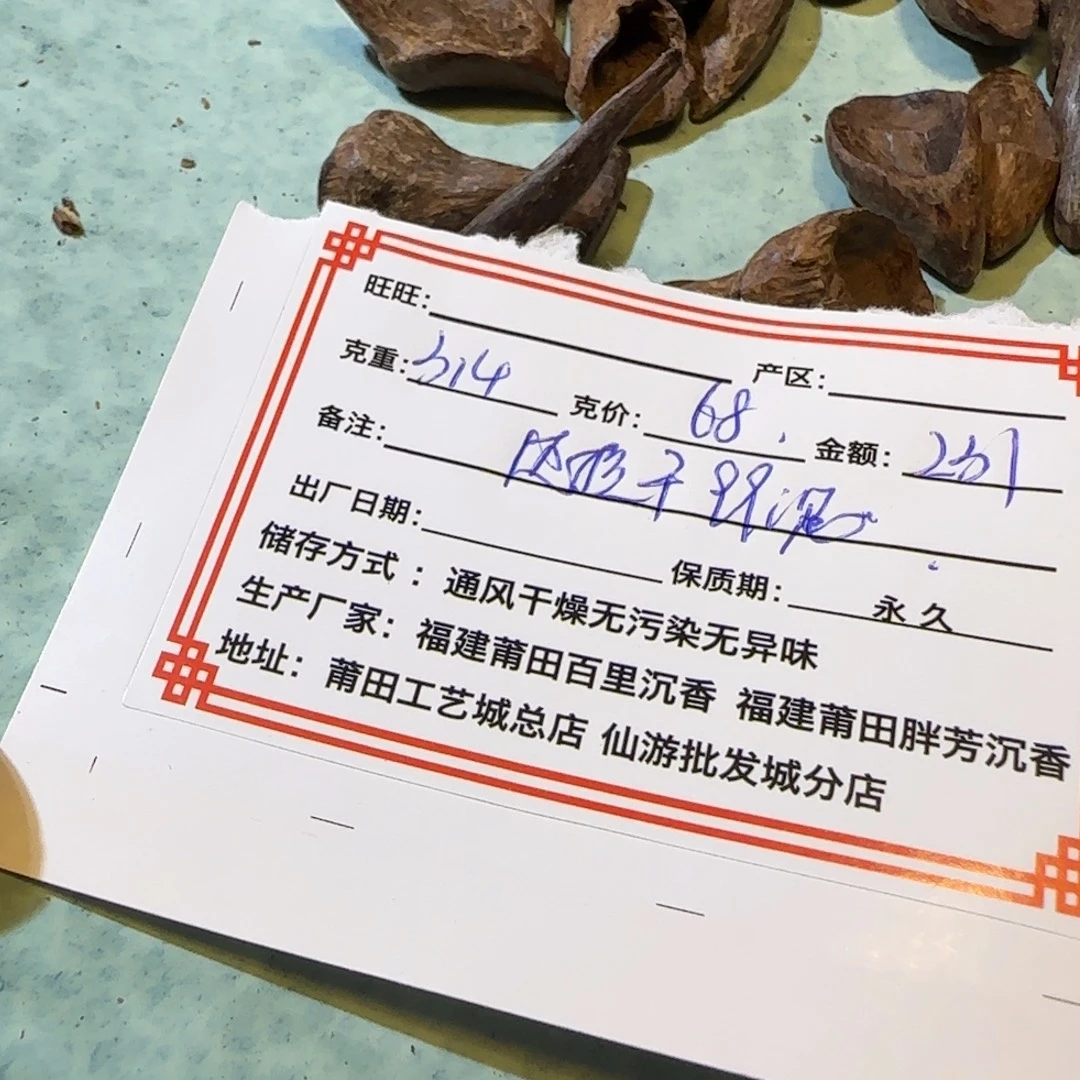 旺旺:
产区:
克重: 314 克价: 68. 金额: 231
备注:
出厂日期: 保质期: 永久
储存方式：通风干燥无污染无异味
生产厂家: 福建莆田百里沉香 福建莆田胖芳沉香
地址: 莆田工艺城总店 仙游批发城分店